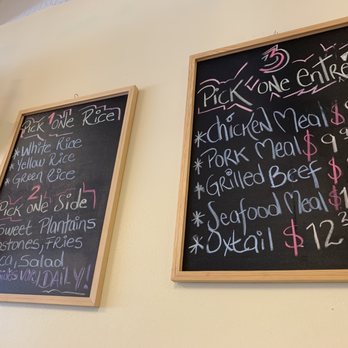 Pick 1 One Rice
* White Rice
* Yellow Rice
* Green Rice
2
Pick one Side
Sweet Plantains
Fries
Salad
DAILY!
3
Pick one entré
* Chicken Meal $
* Pork Meal $9
* Grilled Beef $
* Seafood Meal $1
* Oxtail $12